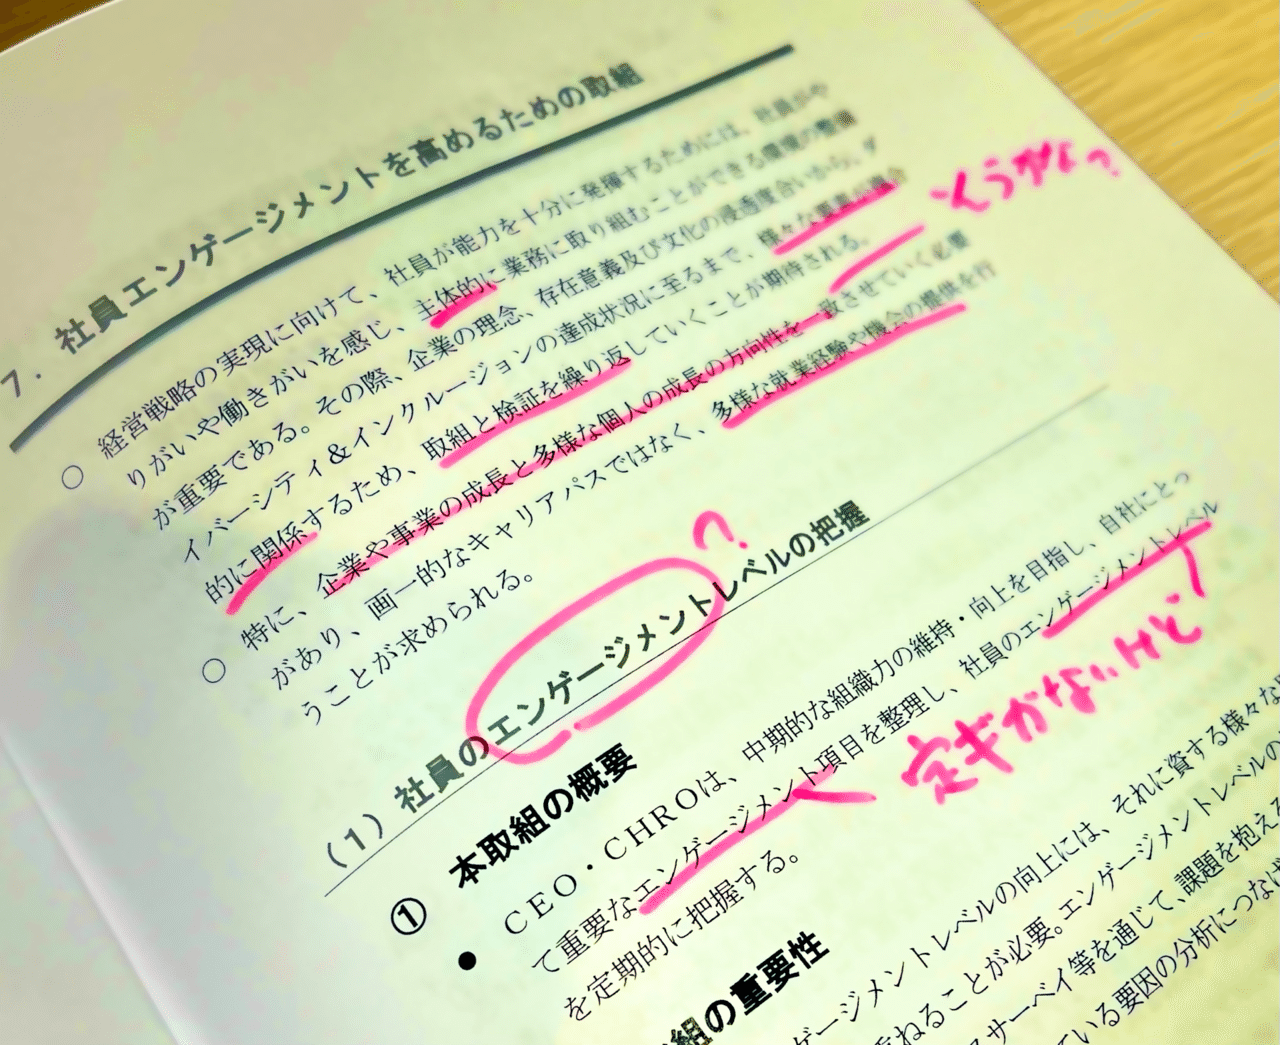 7. 社員エンゲージメントを高めるための取組
○ 経営戦略の実現に向けて、社員が能力を十分に発揮するためには、社員がや
りがいや働きがいを感じ、主体的に業務に取り組むことができる環境の整備
が重要である。その際、企業の理念、存在意義及び文化の浸透度合いから、ダ
イバーシティ&インクルージョンの達成状況に至るまで、様々な要素が複合
的に関係するため、取組と検証を繰り返していくことが期待される。
そうかな?
○ 特に、企業や事業の成長と多様な個人の成長の方向性を一致させていく必要
があり、画一的なキャリアパスではなく、多様な就業経験や機会の提供を行
うことが求められる。
(1)社員のエンゲージメントレベルの把握
?
① 本取組の概要
● CEO・CHROは、中期的な組織力の維持・向上を目指し、自社にとっ
て重要なエンゲージメント項目を整理し、社員のエンゲージメントレベル
を定期的に把握する。
定ギがないけど
組の重要性
ゲージメントレベルの向上には、それに資する様々な
重ねることが必要。エンゲージメントレベルの
スサーベイ等を通じて、課題を抱え
ている要因の分析につなげ